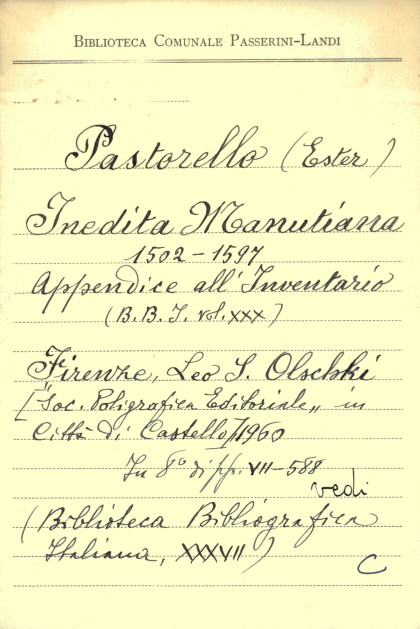 BIBLIOTECA COMUNALE PASSERINI-LANDI
Pastorello (Ester)
Inedita Manutiana
1502-1597
Appendice all'Inventario
(B.B.I. vol. XXX)
Firenze, Leo S. Olschki
["Soc. Poligrafica Editoriale„ in
Città di Castello] 1960
In 8° di pp. VII-588
vedi
(Biblioteca Bibliografica
Italiana, XXXVII)
C